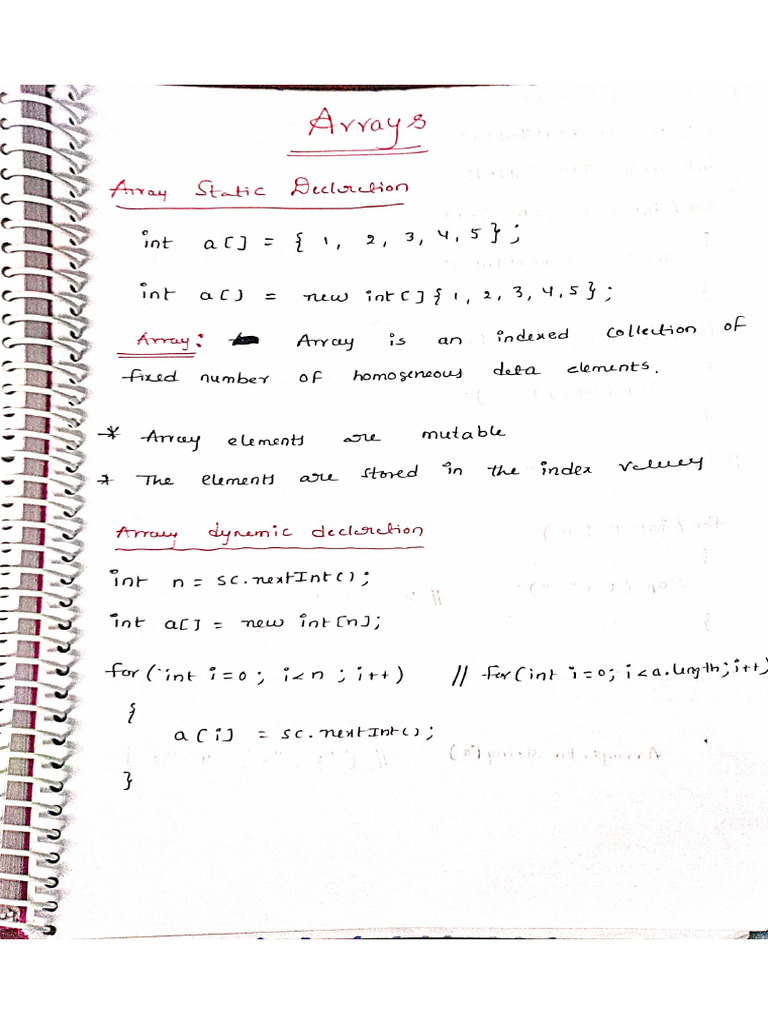 Arrays
Array Static Declaration
int a[] = { 1, 2, 3, 4, 5 };
int a[] = new int[] { 1, 2, 3, 4, 5 };
Array: Array is an indexed collection of
fixed number of homogeneous data elements.
* Array elements are mutable
* The elements are stored in the index values
Array dynamic declaration
int n = sc.nextInt();
int a[] = new int[n];
for (int i=0; i<n; i++) // for(int i=0; i<a.length; i++)
{
a[i] = sc.nextInt();
}